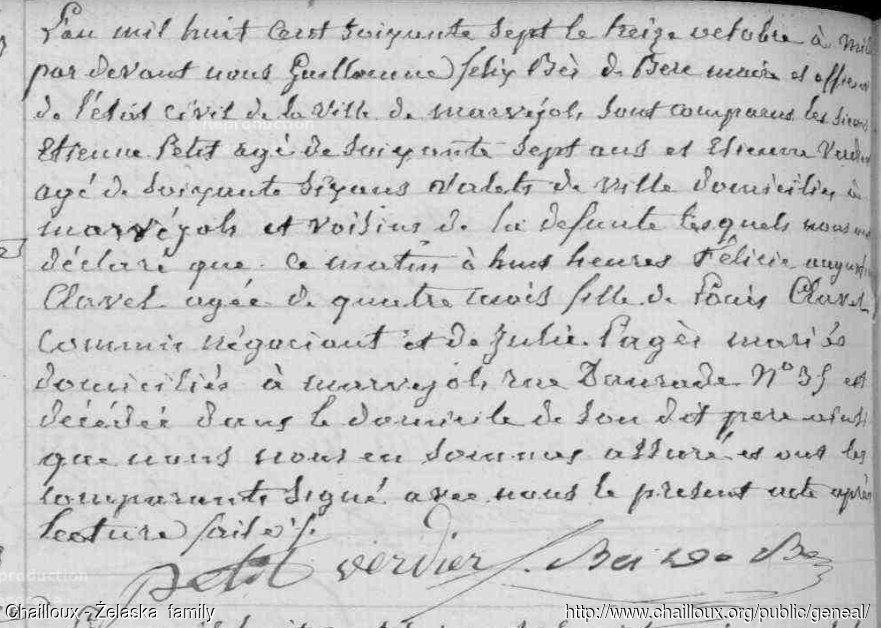 L'an mil huit cent soixante sept le treize octobre à midi
par devant nous Guillaume felix Bès de Berc maire et officier
de l'état civil de la ville de marvejols sont comparus les sieurs
Etienne Petit agé de soixante sept ans et Etienne Verdier
agé de soixante six ans valets de ville domiciliés à
marvéjols et voisins de la defunte lesquels nous ont
déclaré que ce matin à huit heures Félicie augustine
Clavel agée de quatre mois fille de Louis Clavel
commis négociant et de Julie Pagès mariés
domiciliés à marvejols rue Daurade N° 35 est
décédée dans le domicile de son dit pere ainsi
que nous nous en sommes assuré et ont les
comparants signé avec nous le present acte après
lecture faite
Petit Verdier Bès de Berc
production
Chailloux - Żelaska family
http://www.chailloux.org/public/geneal/